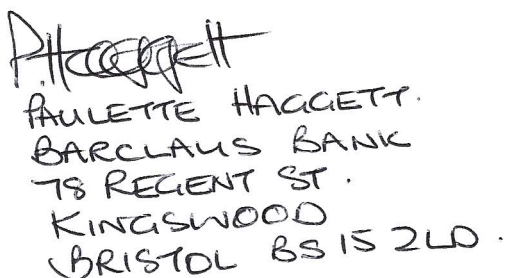 P. Haggett
PAULETTE HAGGETT.
BARCLAYS BANK
78 REGENT ST.
KINGSWOOD
BRISTOL BS15 2LD.